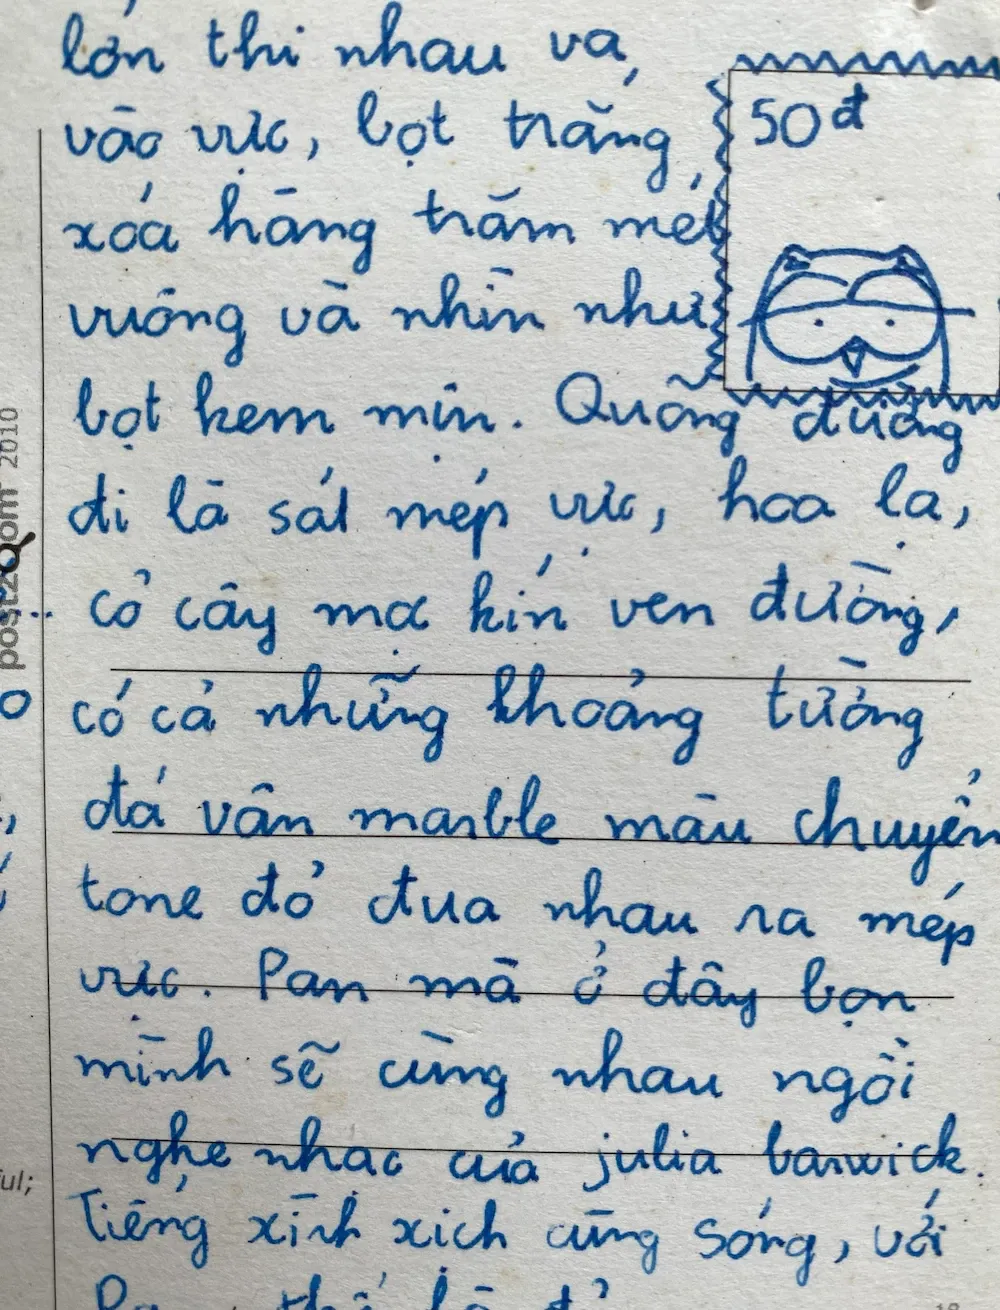 lớn thi nhau va
50đ
vào vực, bọt trắng
xóa hàng trăm mét
vuông và nhìn như
bọt kem mịn. Quãng đường
đi là sát mép vực, hoa lạ,
post2 om 2010
cỏ cây mọc kín ven đường,
có cả những khoảng tường
đá vân marble màu chuyển
tone đỏ đua nhau ra mép
vực. Pan mà ở đây bọn
mình sẽ cùng nhau ngồi
nghe nhạc của julia barwick.
ful;
Tiếng xình xịch cùng sóng, với